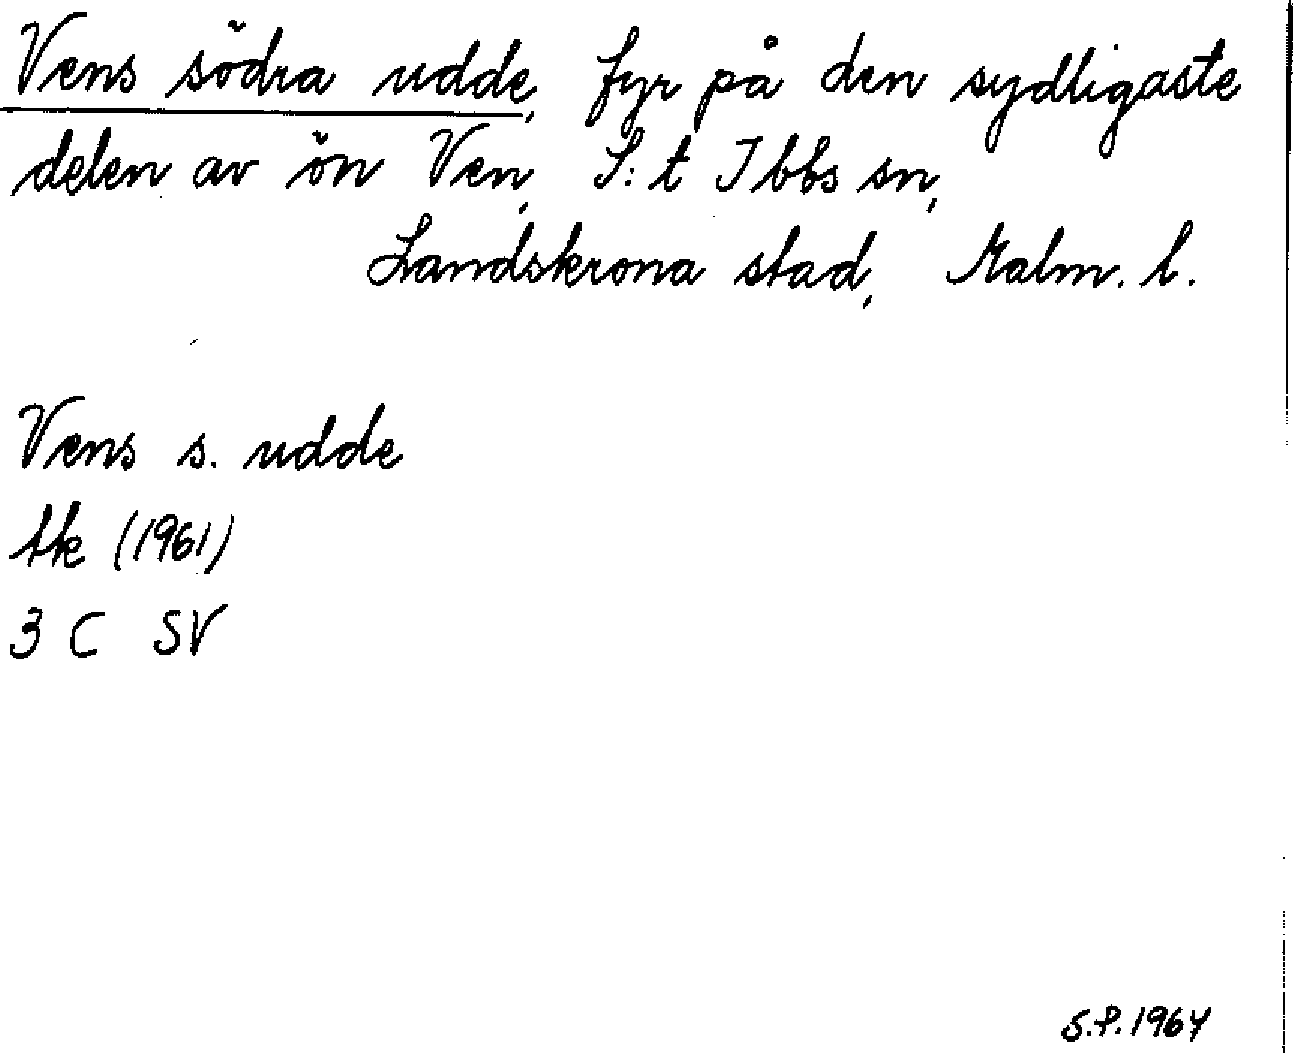 Vens södra udde, fyr på den sydligaste
delen av ön Ven, S:t Ibbs sn,
Landskrona stad, Malm. l.
Vens s. udde
tk (1961)
3 C SV
S.P. 1964